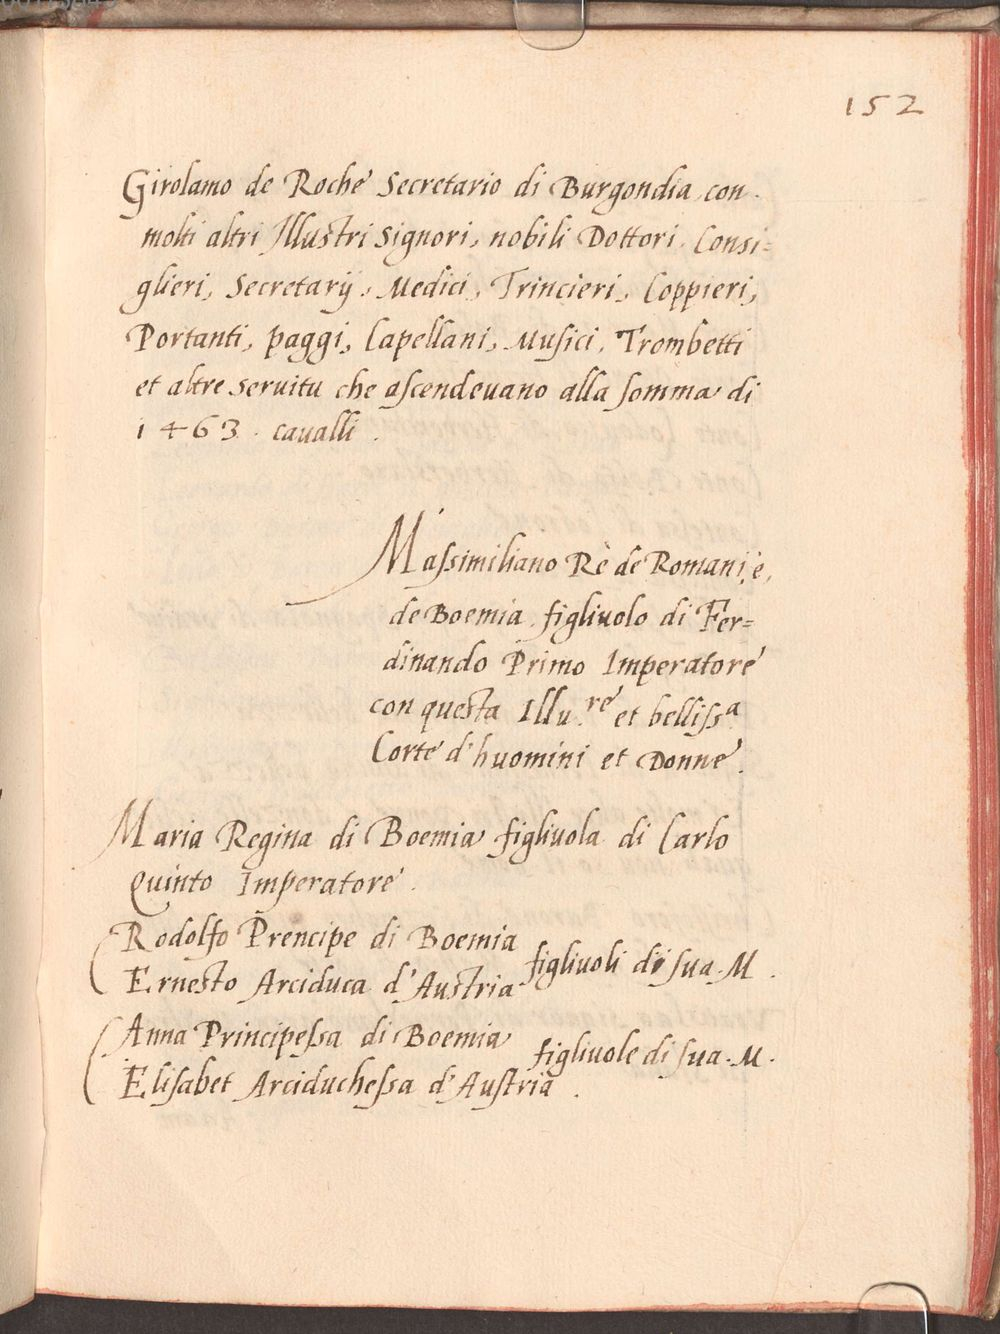 152
Girolamo de Roche Secretario di Burgondia, con
molti altri Illustri Signori, nobili Dottori, Consi=
glieri, Secretarij, Medici, Trincieri, Coppieri,
Portanti, paggi, Capellani, Musici, Trombetti
et altre seruitu che ascendeuano alla somma di
1463. caualli.
Massimiliano Rè de Romani, è,
de Boemia figliuolo di Fer=
dinando Primo Imperatore
con questa Illu.re et belliss.a
Corte d'huomini et Donne.
Maria Regina di Boemia figliuola di Carlo
Quinto Imperatore.
Rodolfo Prencipe di Boemia
Ernesto Arciduca d'Austria figliuoli di sua M.
Anna Principessa di Boemia
Elisabet Arciduchessa d'Austria. figliuole di sua M.